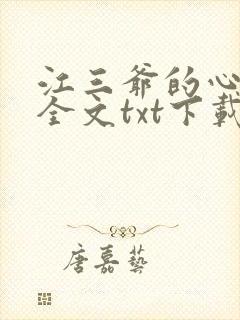 江三爷的心
全文txt下载
唐嘉藝